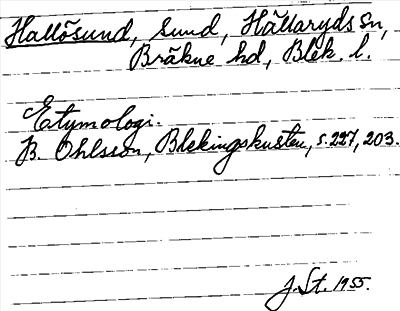 Hallösund, sund, Hällaryds sn,
Bräkne hd, Blek. l.
Etymologi.
B. Ohlsson, Blekingskusten, s. 227, 203.
J. St. 1955.